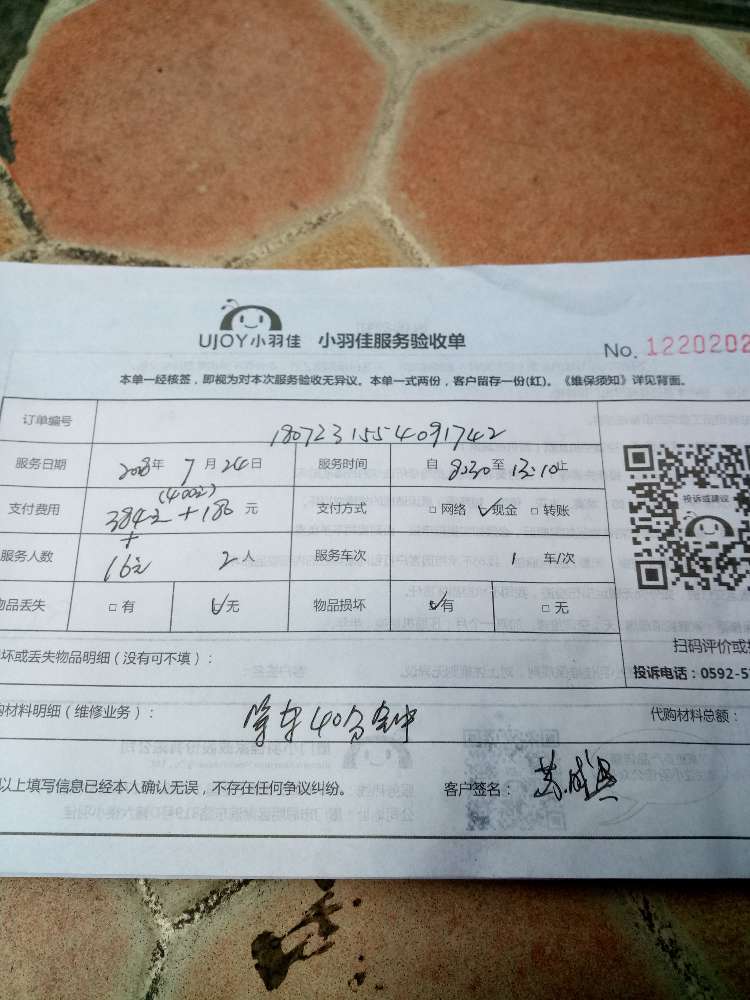 UJOY小羽佳 小羽佳服务验收单
No. 1220202
本单一经核签，即视为对本次服务验收无异议。本单一式两份，客户留存一份(红)。《维保须知》详见背面。
订单编号 1807231554091742
服务日期 2018年 7月 24日 服务时间 自 8:30 至 13:10 止
(4002)
支付费用 3842 + 180 元 支付方式 □ 网络 ☑现金 □ 转账
+
服务人数 16元 2人 服务车次 1 车/次
投诉或建议
物品丢失 □ 有 ☑无 物品损坏 ☑有 □ 无
扫码评价或投
坏或丢失物品明细（没有可不填）：
投诉电话：0592-5
购材料明细（维修业务）： 等车40分钟 代购材料总额：
以上填写信息已经本人确认无误，不存在任何争议纠纷。 客户签名：